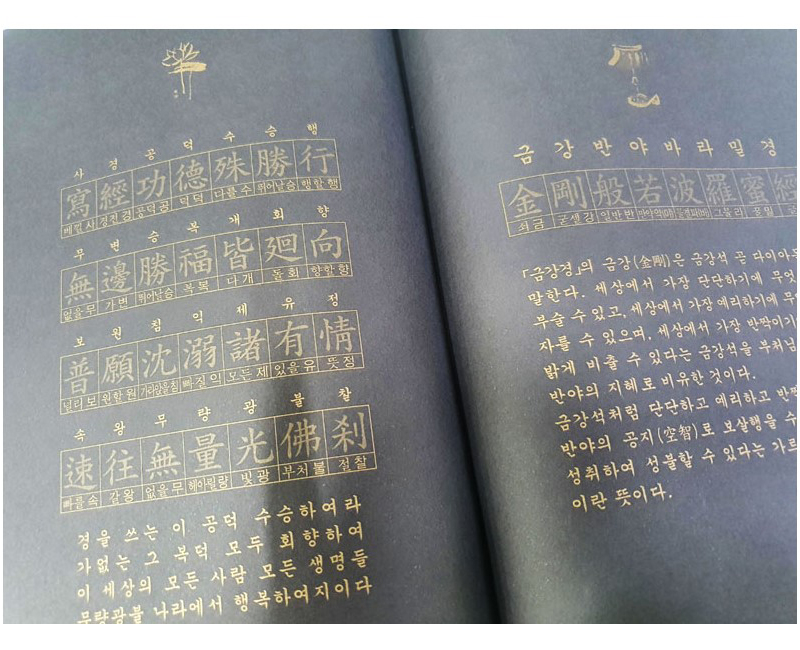 사 경 공 덕 수 승 행
寫 經 功 德 殊 勝 行
베낄 사 경전 경 공덕 공 덕 덕 다를 수 뛰어날 승 행할 행
무 변 승 복 개 회 향
無 邊 勝 福 皆 廻 向
없을 무 가 변 뛰어날 승 복 복 다 개 돌 회 향할 향
보 원 침 익 제 유 정
普 願 沈 溺 諸 有 情
널리 보 원할 원 가라앉을 침 빠질 익 모든 제 있을 유 뜻 정
속 왕 무 량 광 불 찰
速 往 無 量 光 佛 刹
빠를 속 갈 왕 없을 무 헤아릴 량 빛 광 부처 불 절 찰
경을 쓰는 이 공덕 수승하여라
가없는 그 복덕 모두 회향하여
이 세상의 모든 사람 모든 생명들
무량광불 나라에서 행복하여지이다
금 강 반 야 바 라 밀 경
金 剛 般 若 波 羅 蜜 經
쇠 금 굳셀 강 일반 반 그물 라 꿀 밀
「금강경」의 금강(金剛)은 금강석 곧
말한다. 세상에서 가장 단단하기에
부술 수 있고, 세상에서 가장 예리하기에
자를 수 있으며, 세상에서 가장 반짝이기
밝게 비출 수 있다는 금강석을
반야의 지혜로 비유한 것이다.
금강석처럼 단단하고 예리하고
반야의 공지(空智)로 보살행을
성취하여 성불할 수 있다는
이란 뜻이다.